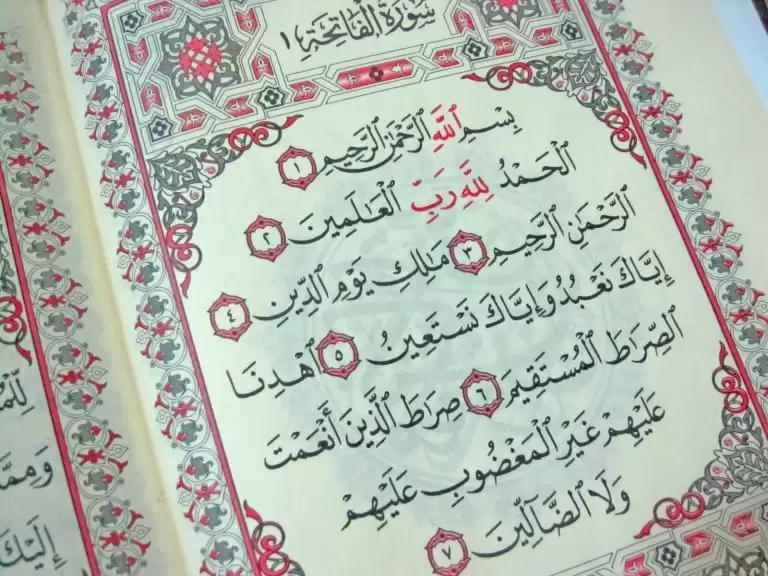 سُورَةُ الْفَاتِحَةِ ١
بِسْمِ ٱللَّهِ ٱلرَّحْمَٰنِ ٱلرَّحِيمِ ١
ٱلْحَمْدُ لِلَّهِ رَبِّ ٱلْعَٰلَمِينَ ٢
ٱلرَّحْمَٰنِ ٱلرَّحِيمِ ٣ مَٰلِكِ يَوْمِ ٱلدِّينِ ٤
إِيَّاكَ نَعْبُدُ وَإِيَّاكَ نَسْتَعِينُ ٥ ٱهْدِنَا
ٱلصِّرَٰطَ ٱلْمُسْتَقِيمَ ٦ صِرَٰطَ ٱلَّذِينَ أَنْعَمْتَ
عَلَيْهِمْ غَيْرِ ٱلْمَغْضُوبِ عَلَيْهِمْ
وَلَا ٱلضَّآلِّينَ ٧
وَمِمَّا
إِلَيْكَ